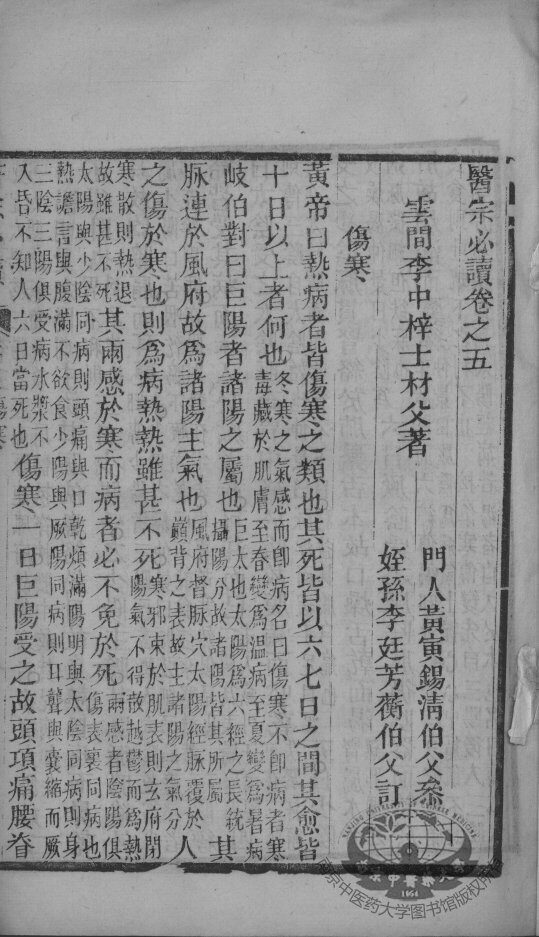 醫宗必讀卷之五
雲間李中梓士材父著
門人黃寅錫清伯父叅
姪孫李廷芳蘅伯父訂
傷寒
黃帝曰熱病者皆傷寒之類也其死皆以六七日之間其愈皆
十日以上者何也冬寒之氣感而卽病名曰傷寒不卽病者寒毒藏於肌膚至春變爲溫病至夏變爲暑病
岐伯對曰巨陽者諸陽之屬也巨太也太陽爲六經之長統攝陽分故諸陽皆其所屬其
脉連於風府故爲諸陽主氣也風府督脉穴太陽經脉覆於巔背之表故主諸陽之氣分人
之傷於寒也則爲病熱熱雖甚不死寒邪束於肌表則玄府閉陽氣不得散越鬱而爲熱
寒散則熱退故雖甚不死其兩感於寒而病者必不免於死兩感者陰陽俱傷表裏同病也
太陽與少陰同病則頭痛與口乾煩滿陽明與太陰同病則身熱譫言與腹滿不欲食少陽與厥陽同病則耳聾與囊縮而厥
三陰三陽俱受病水漿不入昏不知人六日當死也傷寒一日巨陽受之故頭項痛腰脊
南京中医药大学图书馆版权所有
1954